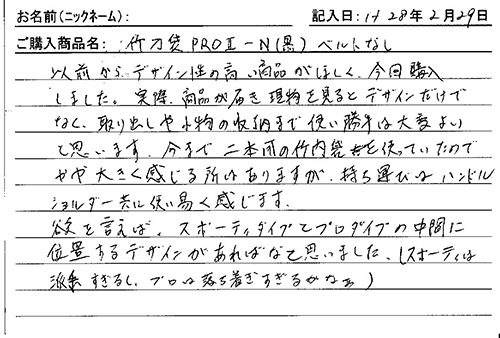 お名前(ニックネーム): 記入日:H28年2月29日
ご購入商品名:竹刀袋PROⅡ-N(黒) ベルトなし
以前からデザイン性の高い商品がほしく、今回購入
しました。実際、商品が届き現物を見るとデザインだけで
なく、取り出しや小物の収納まで使い勝手は大変よい
と思います。今まで二本用の竹刀袋を使っていたので
やや大きく感じる所はありますが、持ち運びはハンドル
ショルダー共に使い易く感じます。
欲を言えば、スポーティタイプとプロタイプの中間に
位置するデザインがあればなと思いました。(スポーティは
派手すぎるし、プロは落ち着きすぎるかなぁ)